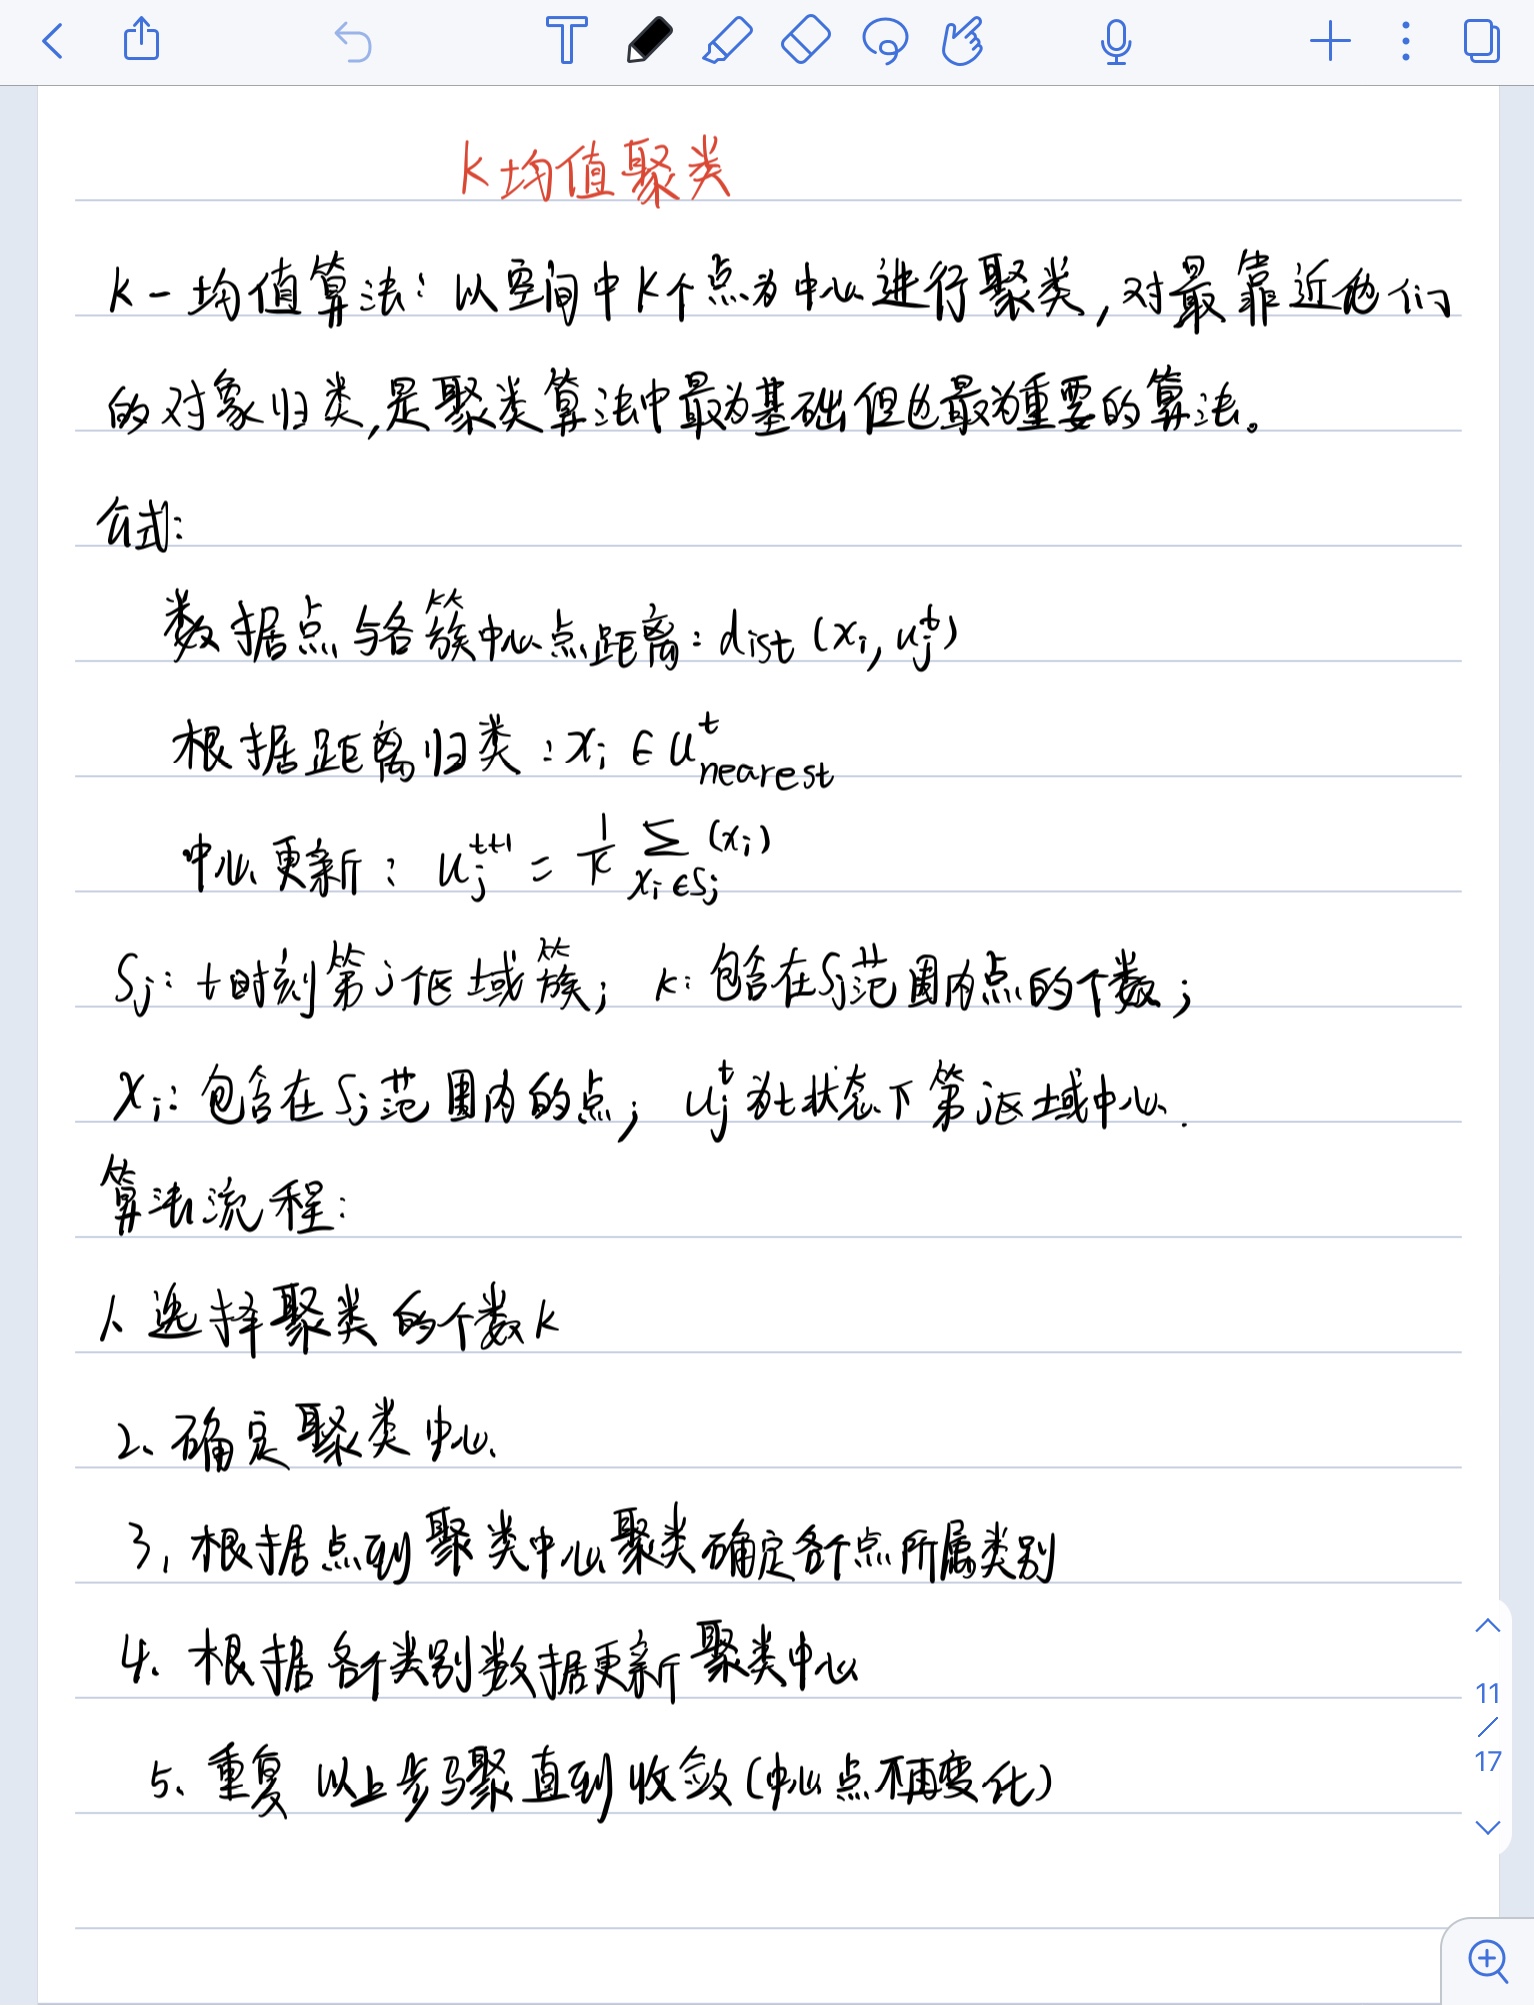 K均值聚类
K-均值算法：以空间中K个点为中心进行聚类，对最靠近他们
的对象归类，是聚类算法中最为基础但也最为重要的算法。
公式：
数据点与各簇中心点距离：dist(xᵢ, uⱼᵗ)
根据距离归类：xᵢ ∈ uᵗnearest
中心更新：uⱼᵗ⁺¹ = 1/k ∑ xᵢ∈Sⱼ (xᵢ)
Sⱼ：t时刻第j个区域簇；k：包含在Sⱼ范围内点的个数；
Xᵢ：包含在Sⱼ范围内的点；uⱼᵗ为t状态下第j区域中心.
算法流程：
1、选择聚类的个数k
2、确定聚类中心
3、根据点到聚类中心聚类确定各个点所属类别
4、根据各个类别数据更新聚类中心
5、重复以上步骤聚直到收敛(中心点不再变化)
11
/
17